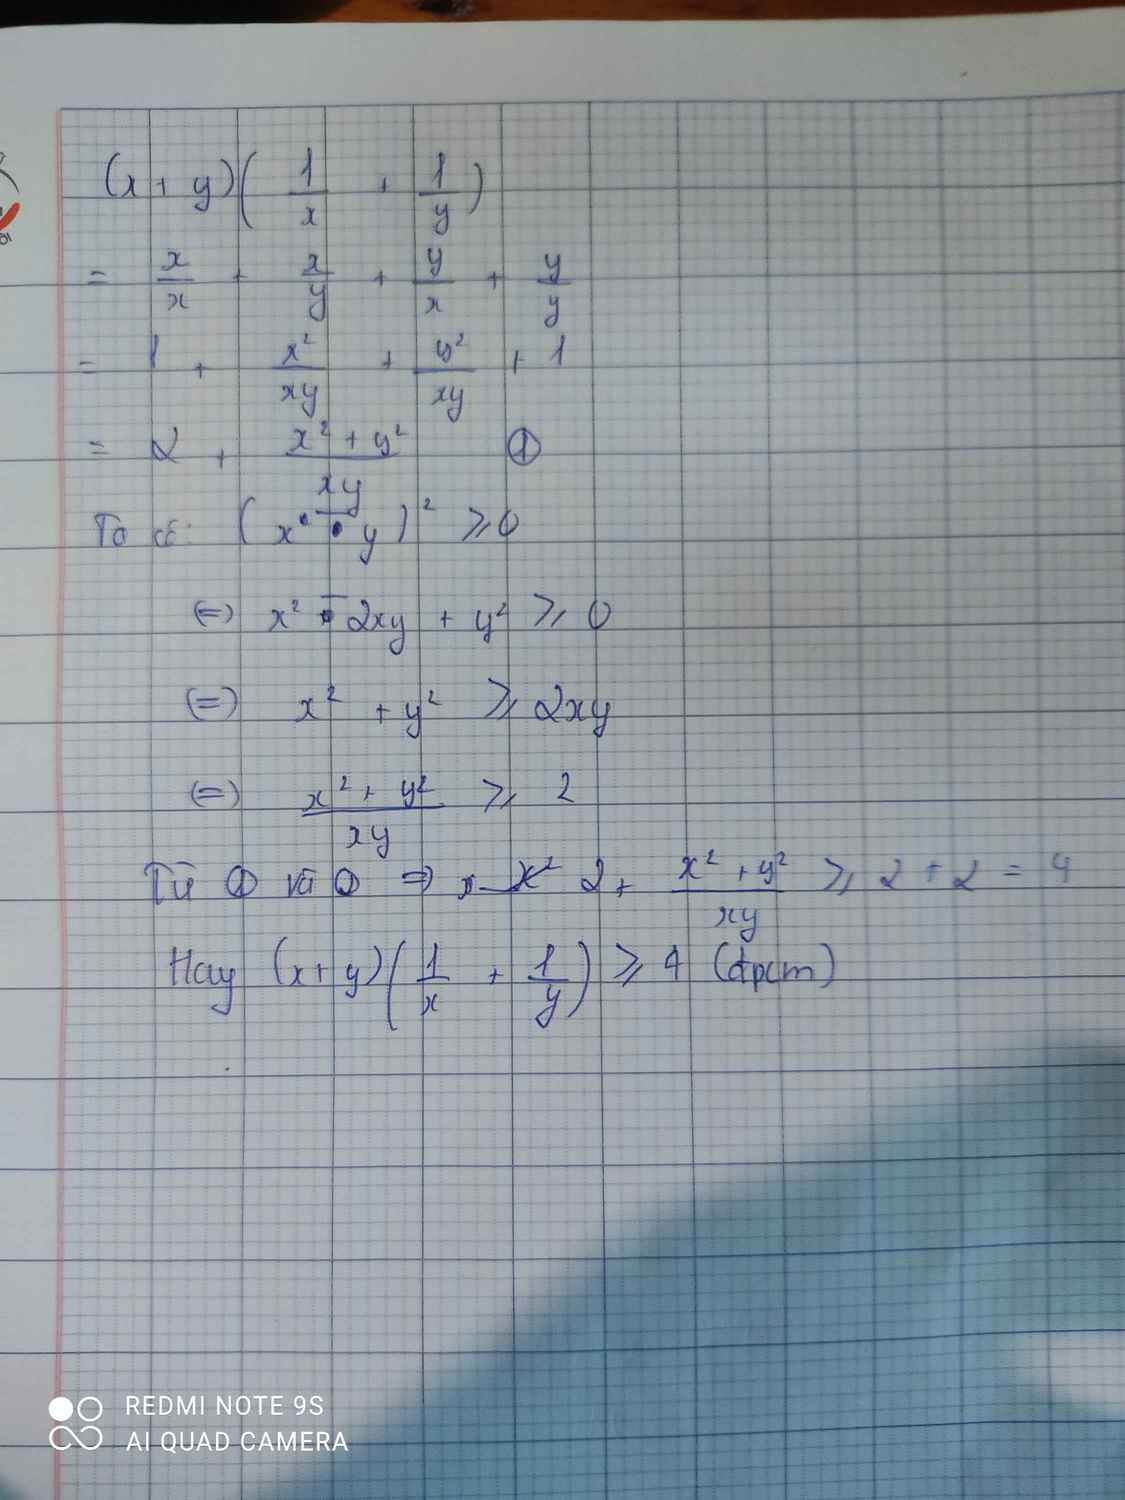 (x + y)(1/x + 1/y)
= x/x + x/y + y/x + y/y
= 1 + x²/xy + y²/xy + 1
= 2 + (x² + y²)/xy ①
Ta có: (x - y)² ≥ 0
(=) x² - 2xy + y² ≥ 0
(=) x² + y² ≥ 2xy
(=) (x² + y²)/xy ≥ 2
Từ ① và ② ⇒ 2 + (x² + y²)/xy ≥ 2 + 2 = 4
Hay (x + y)(1/x + 1/y) ≥ 4 (đpcm)
REDMI NOTE 9S
AI QUAD CAMERA